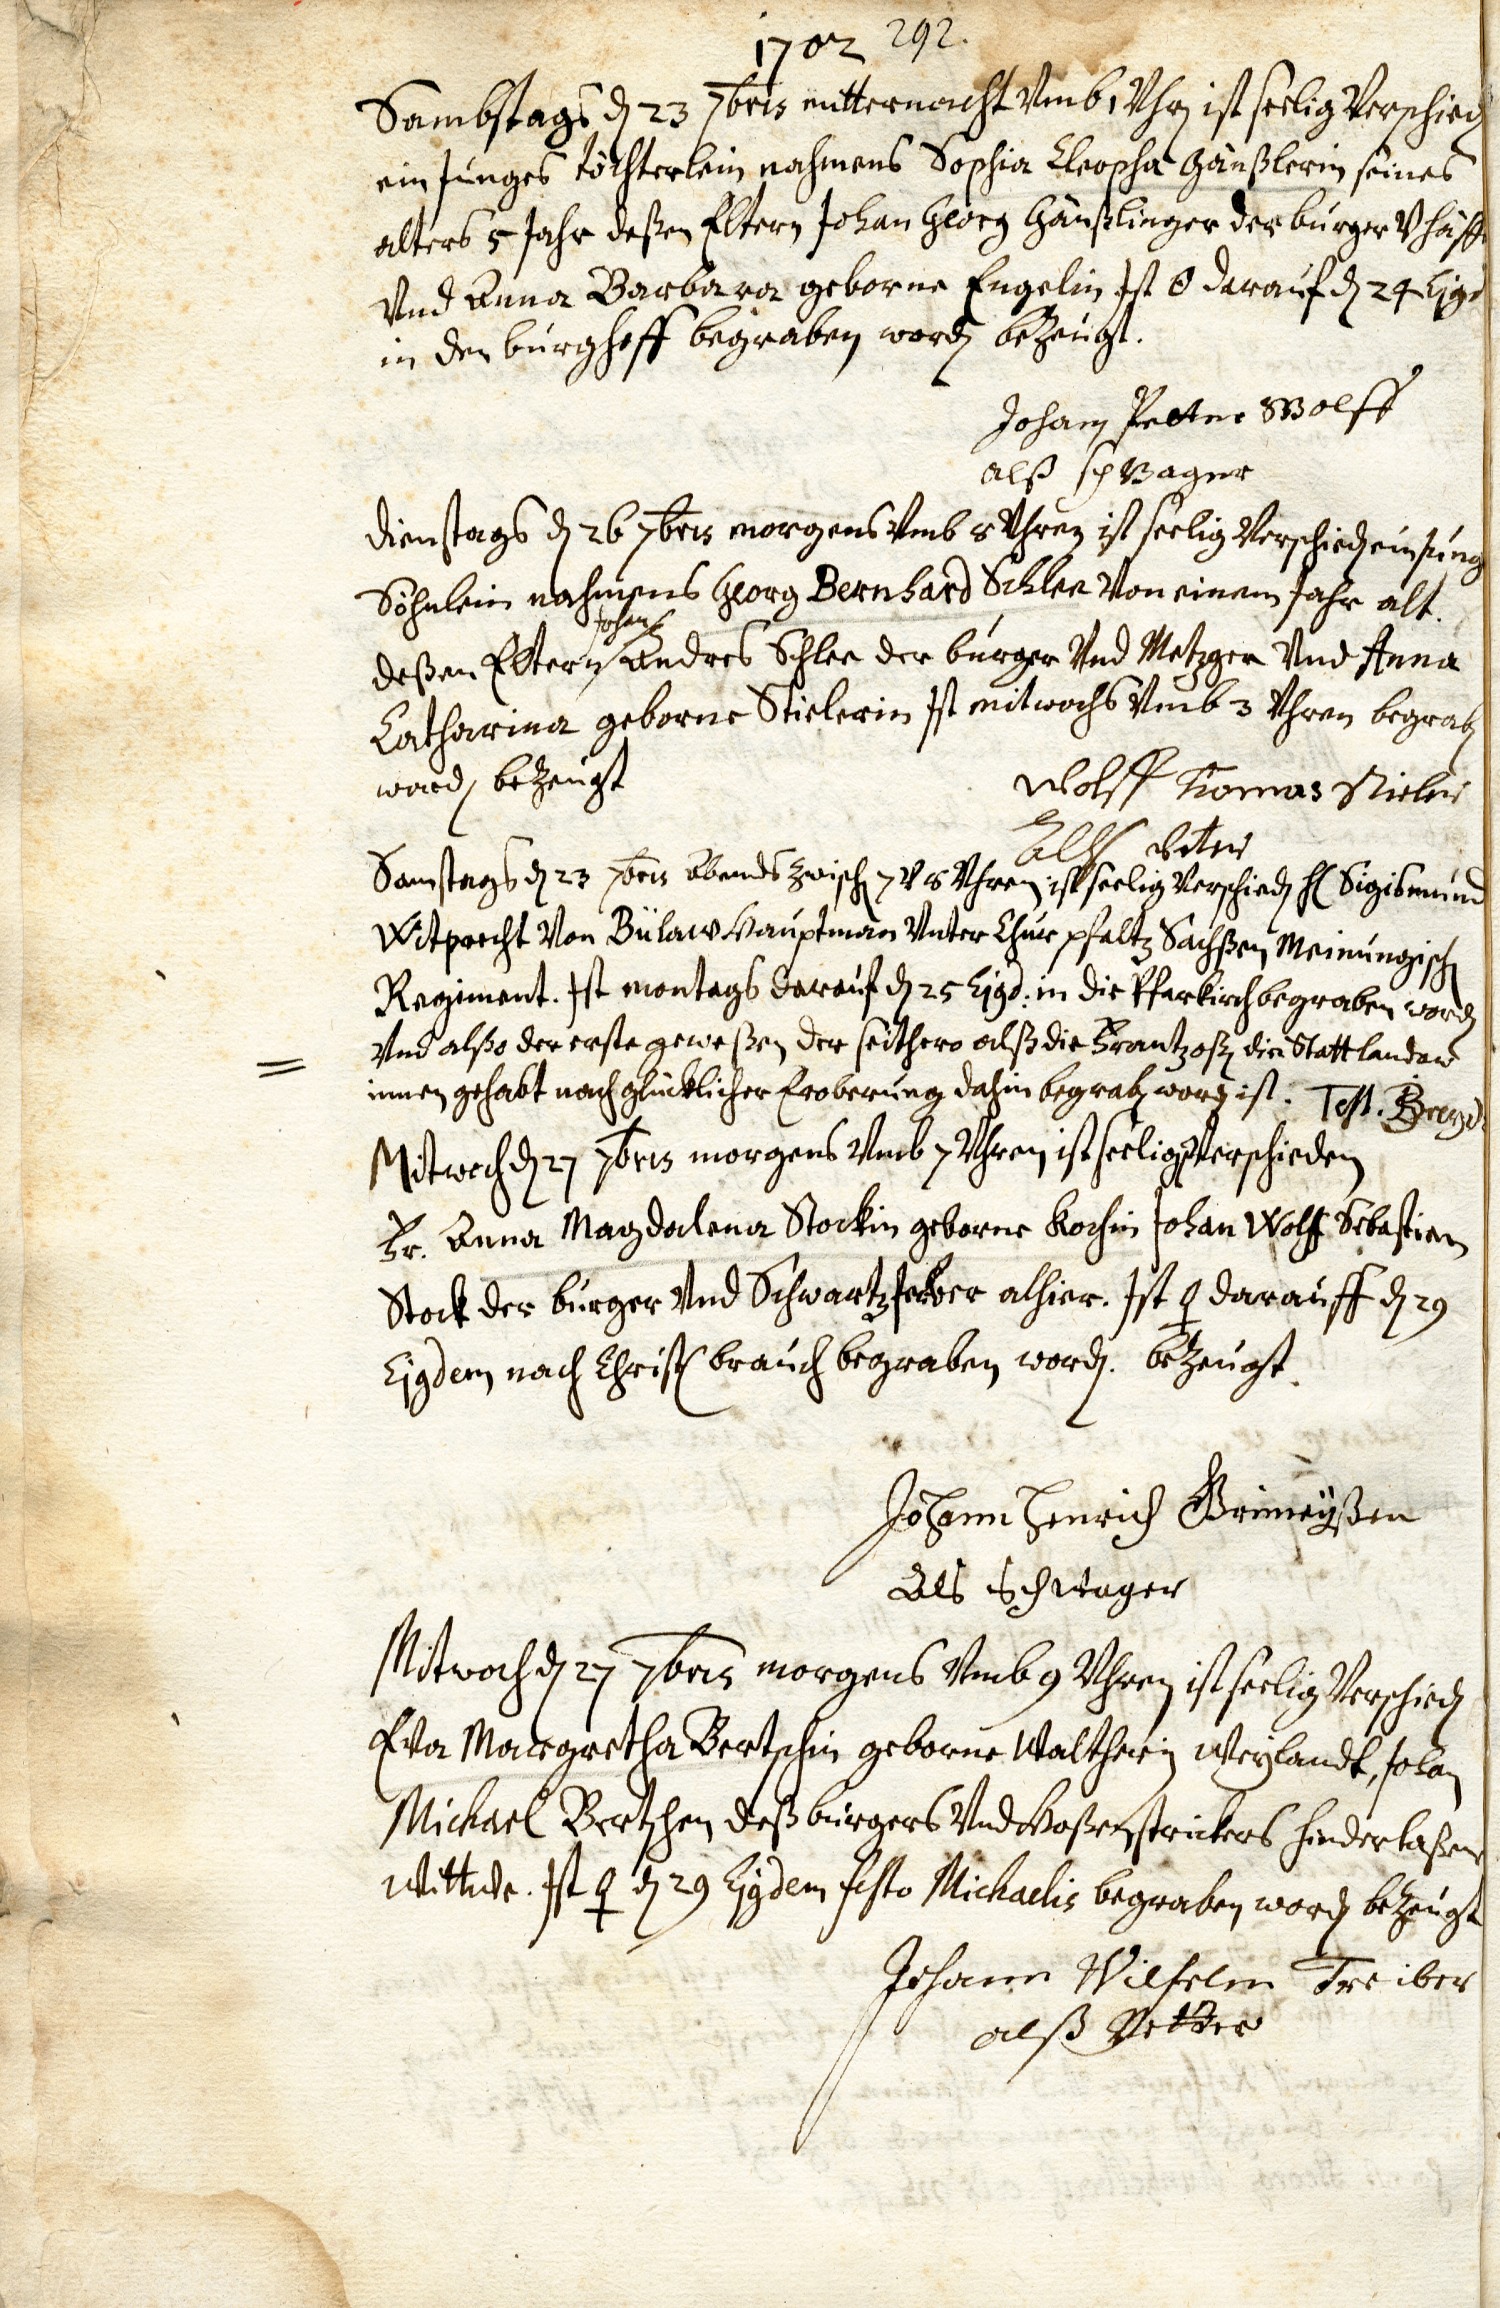 1702 292.
Sambstags d 23 7bris mitternacht Vmb 1 Vhr ist seelig Verschied
ein Junges töchterlein nahmens Sophia Cleopha Hänßlerin seines
alters 5 Jahr deßen Eltern Johan Georg Hänßlinger der burger V
Vnd Anna Barbara geborne Engelin Ist darauf d 24 Ejgd
in den burghoff begraben word bezeugt.
Johann Petter Wolff
alß schwager
Dienstags d 26 7bris morgens Vmb 8 Vhren ist seelig Verschied ein Jung
Söhnlein nahmens Georg Bernhard Schlee Von einem Jahr alt.
Johan
deßen Eltern Andres Schlee der burger Vnd Metzger Vnd Anna
Catharina geborne Stielerin Ist mitwochs Vmb 3 Vhren begrab
word bezeugt
Wolff Thomas Stieler
Alß Vetter
Samstags d 23 7bris Abends zwisch 7 V 8 Vhren ist seelig Verschied H Sigismund
Witprecht Von Bülaw Hauptman Vnter Chur pfaltz Sachßen Meinungisch
Regiment. Ist montags darauf d 25 Ejgd: in die Pfarkirch begraben word
Vnd alßo der erste geweßen der seithero alß die Frantzoß die Statt landaw
innen gehabt nach glücklicher Eroberung dahin begrab word ist. Test.
Mitwoch d 27 7bris morgens Vmb 7 Vhren ist seelig Verschieden
Fr. Anna Magdalena Stockin geborne Kochin Johan Wolff Sebastian
Stock der burger Vnd Schwartzferber alhier. Ist ♀ darauff d 29
Ejgdem nach Christ brauch begraben word. bezeugt.
Johann Henrich Grimeyßen
Als Schwager
Mitwoch d 27 7bris morgens Vmb 9 Vhren ist seelig Verschied
Eva Margretha Bertschin geborne Waltherin Weylandt, Johan
Michael Bertschen deß burgers Vnd Hoßenstrickers hinderlaßene
Wittwe. Ist ♀ d 29 Ejgdem festo Michaelis begraben word bezeugt
Johann Wilhelm Treiber
alß Vetter